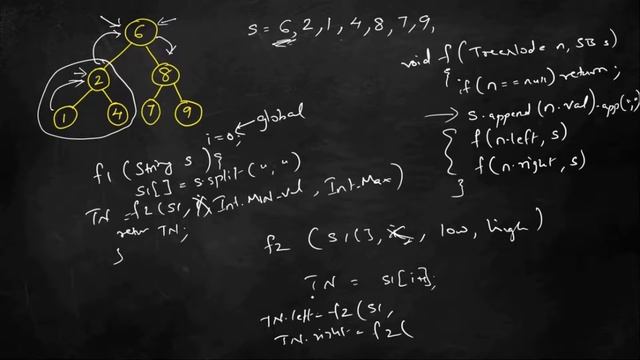 6
2
8
1
4
7
9
S = 6, 2, 1, 4, 8, 7, 9,
void f (TreeNode n, SB s)
{
if (n == null) return;
→ s.append(n.val).app(',');
f(n.left, s)
f(n.right, s)
}
i = 0; global
f1 (String s) {
s1[] = s.split(",")
TN = f2(s1, Int.MIN_Val, Int.Max)
retur TN;
}
f2 (s1[], low, high)
TN = s1[i++];
TN.left = f2(s1,
TN.right = f2(